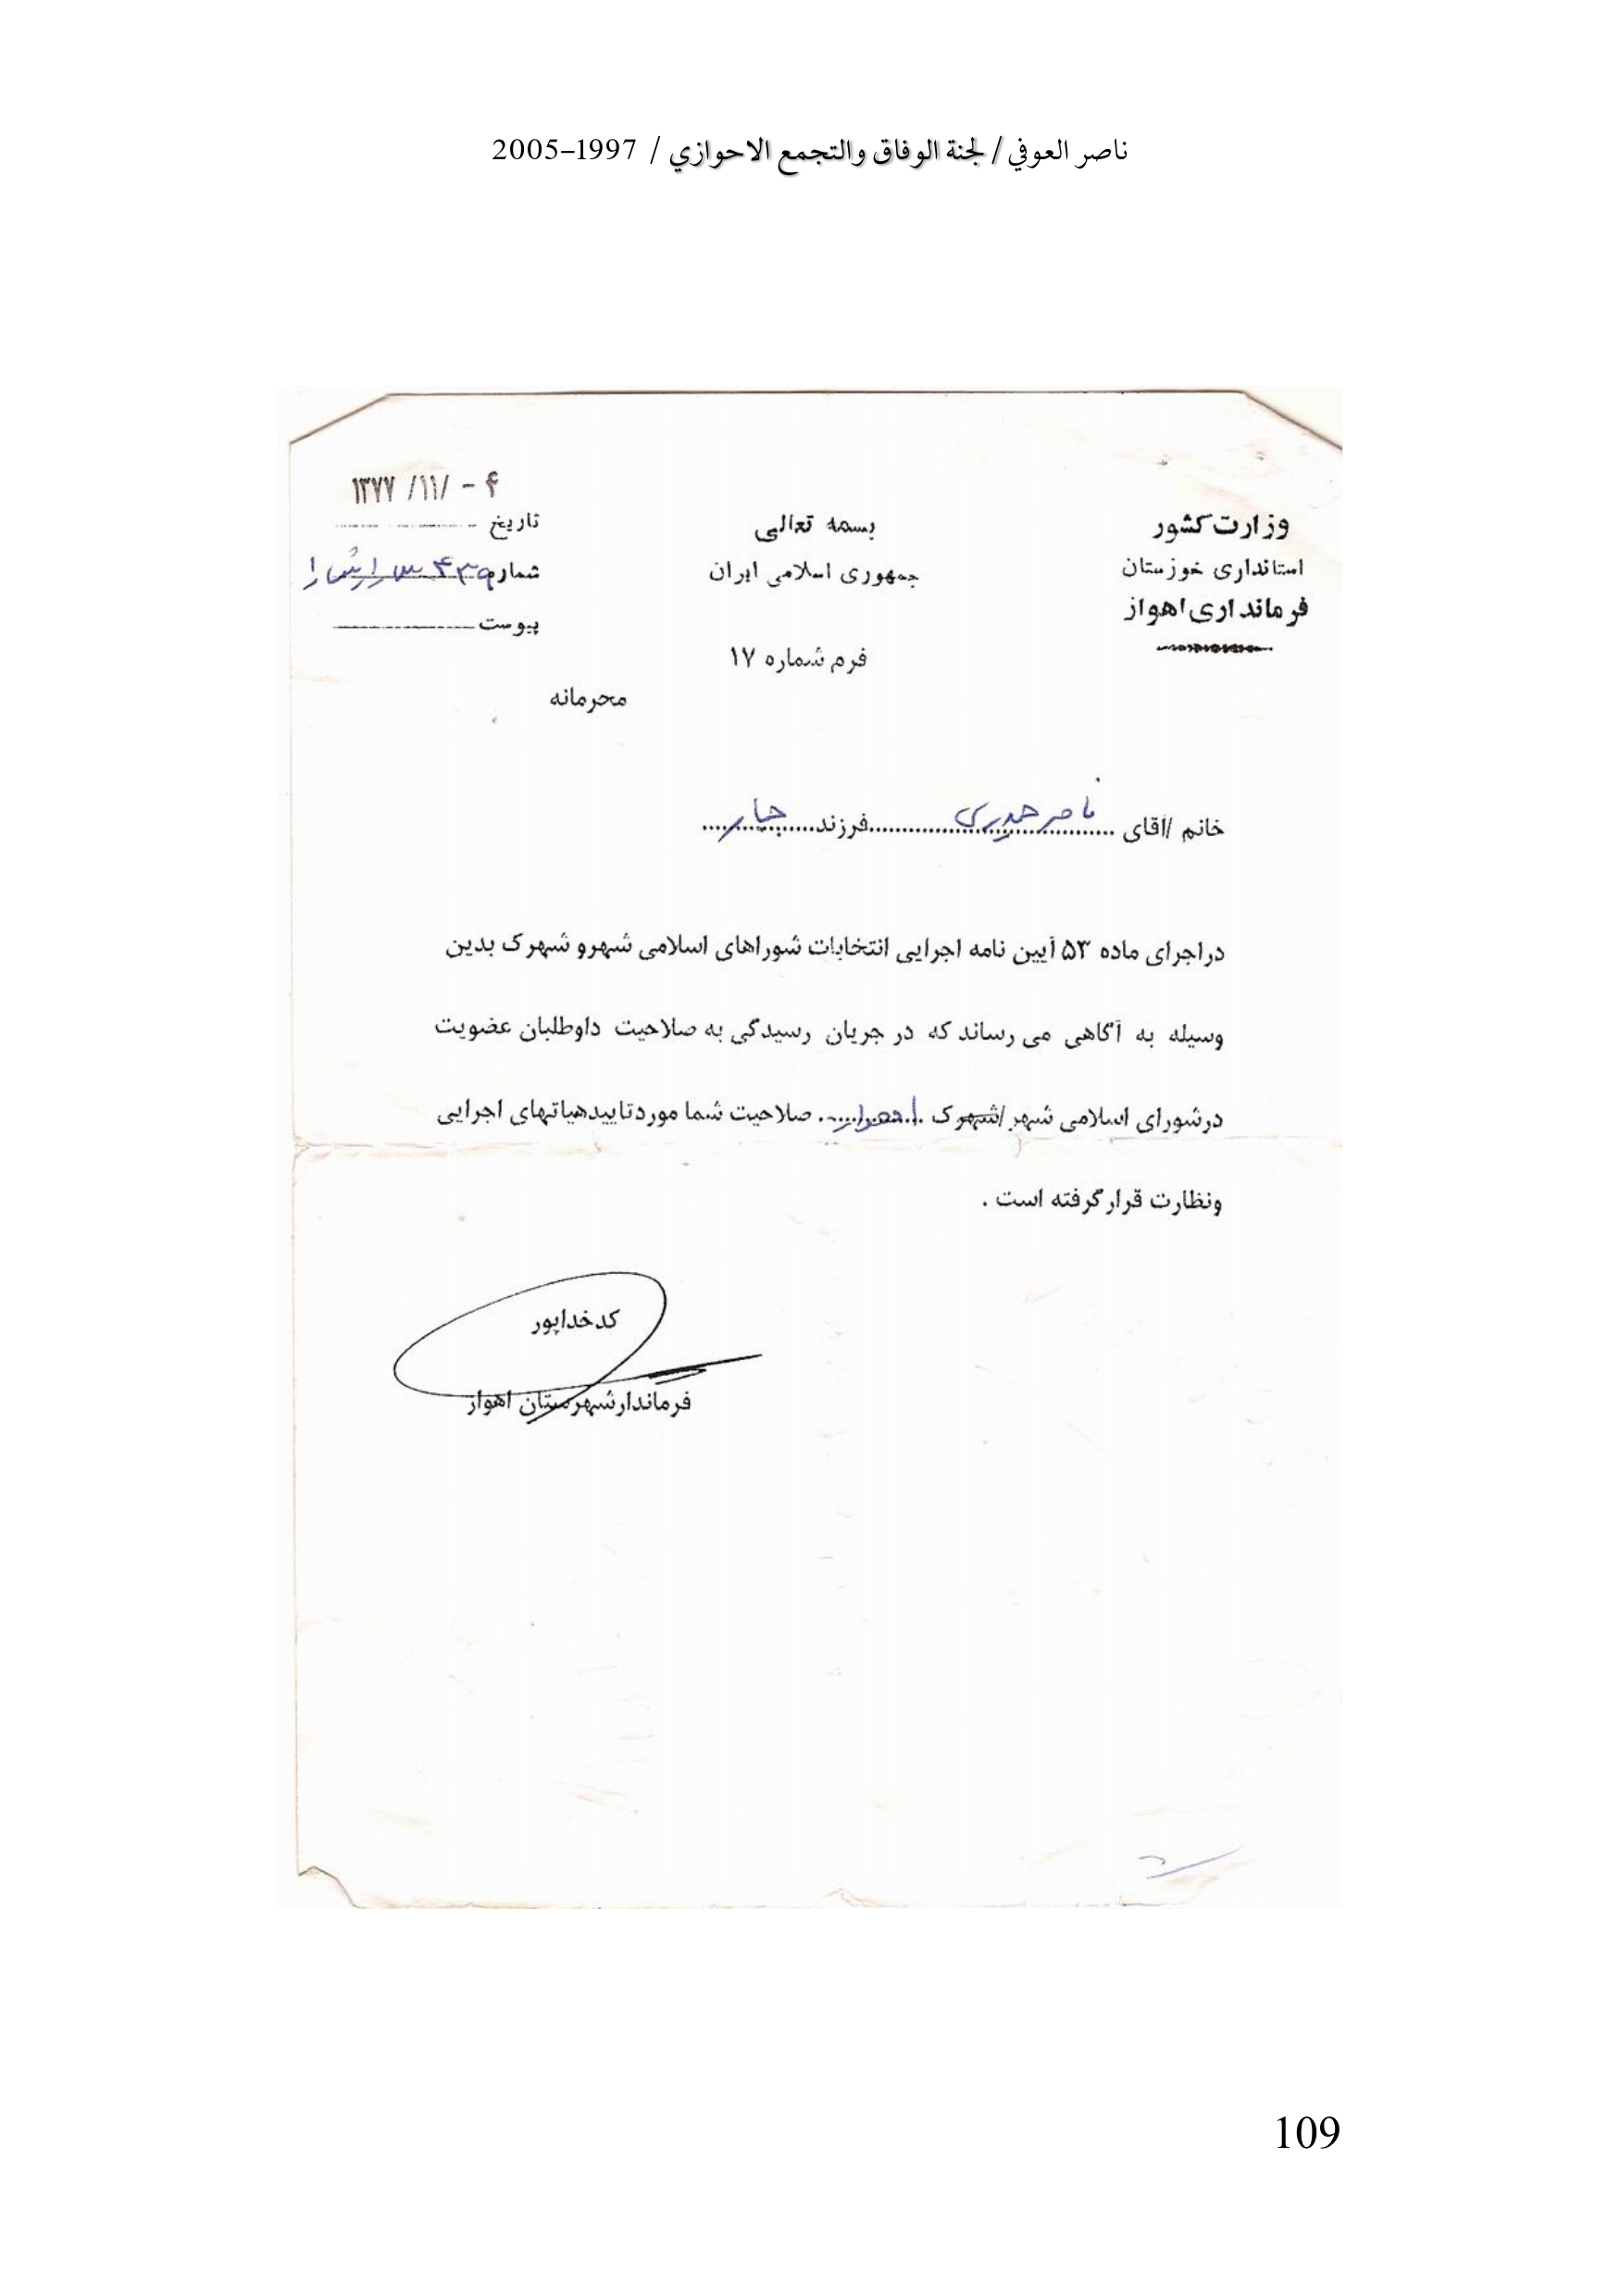 ناصر العوفي / لجنة الوفاق والتجمع الاحوازي / 1997-2005
وزارت کشور
استانداری خوزستان
فرمانداری اهواز
بسمه تعالی
جمهوری اسلامی ایران
فرم شماره ۱۷
محرمانه
۴ - /۱۱/ ۱۳۷۷
تاریخ
شماره
پیوست
خانم /آقای ناصر حیدری فرزند جبار
دراجرای ماده ۵۳ آیین نامه اجرایی انتخابات شوراهای اسلامی شهرو شهرک بدین
وسیله به آگاهی می رساند که در جریان رسیدگی به صلاحیت داوطلبان عضویت
درشورای اسلامی شهر/شهرک اهواز صلاحیت شما موردتاییدهیاتهای اجرایی
ونظارت قرارگرفته است .
کدخداپور
فرماندارشهرستان اهواز
109